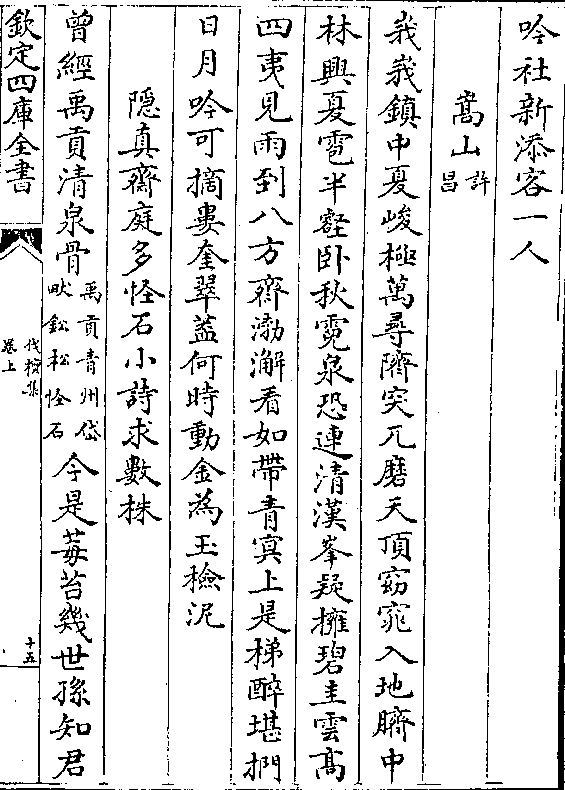 吟社新添客一人
嵩山許昌
峩峩鎮中夏峻極萬尋隮突兀磨天頂窈窕入地臍中
林興夏雹半壑卧秋霓泉恐連清漢峯疑擁碧圭雲髙
四夷見雨到八方齊渤澥看如帶青冥上是梯醉堪捫
日月吟可摘婁奎翠葢何時動金為玉檢泥
隠真齋庭多怪石小詩求數株
曾經禹貢清泉骨禹貢青州岱畎鈆松怪石今是莓苔幾世孫知君
欽定四庫全書
伐檀集
卷上
十五